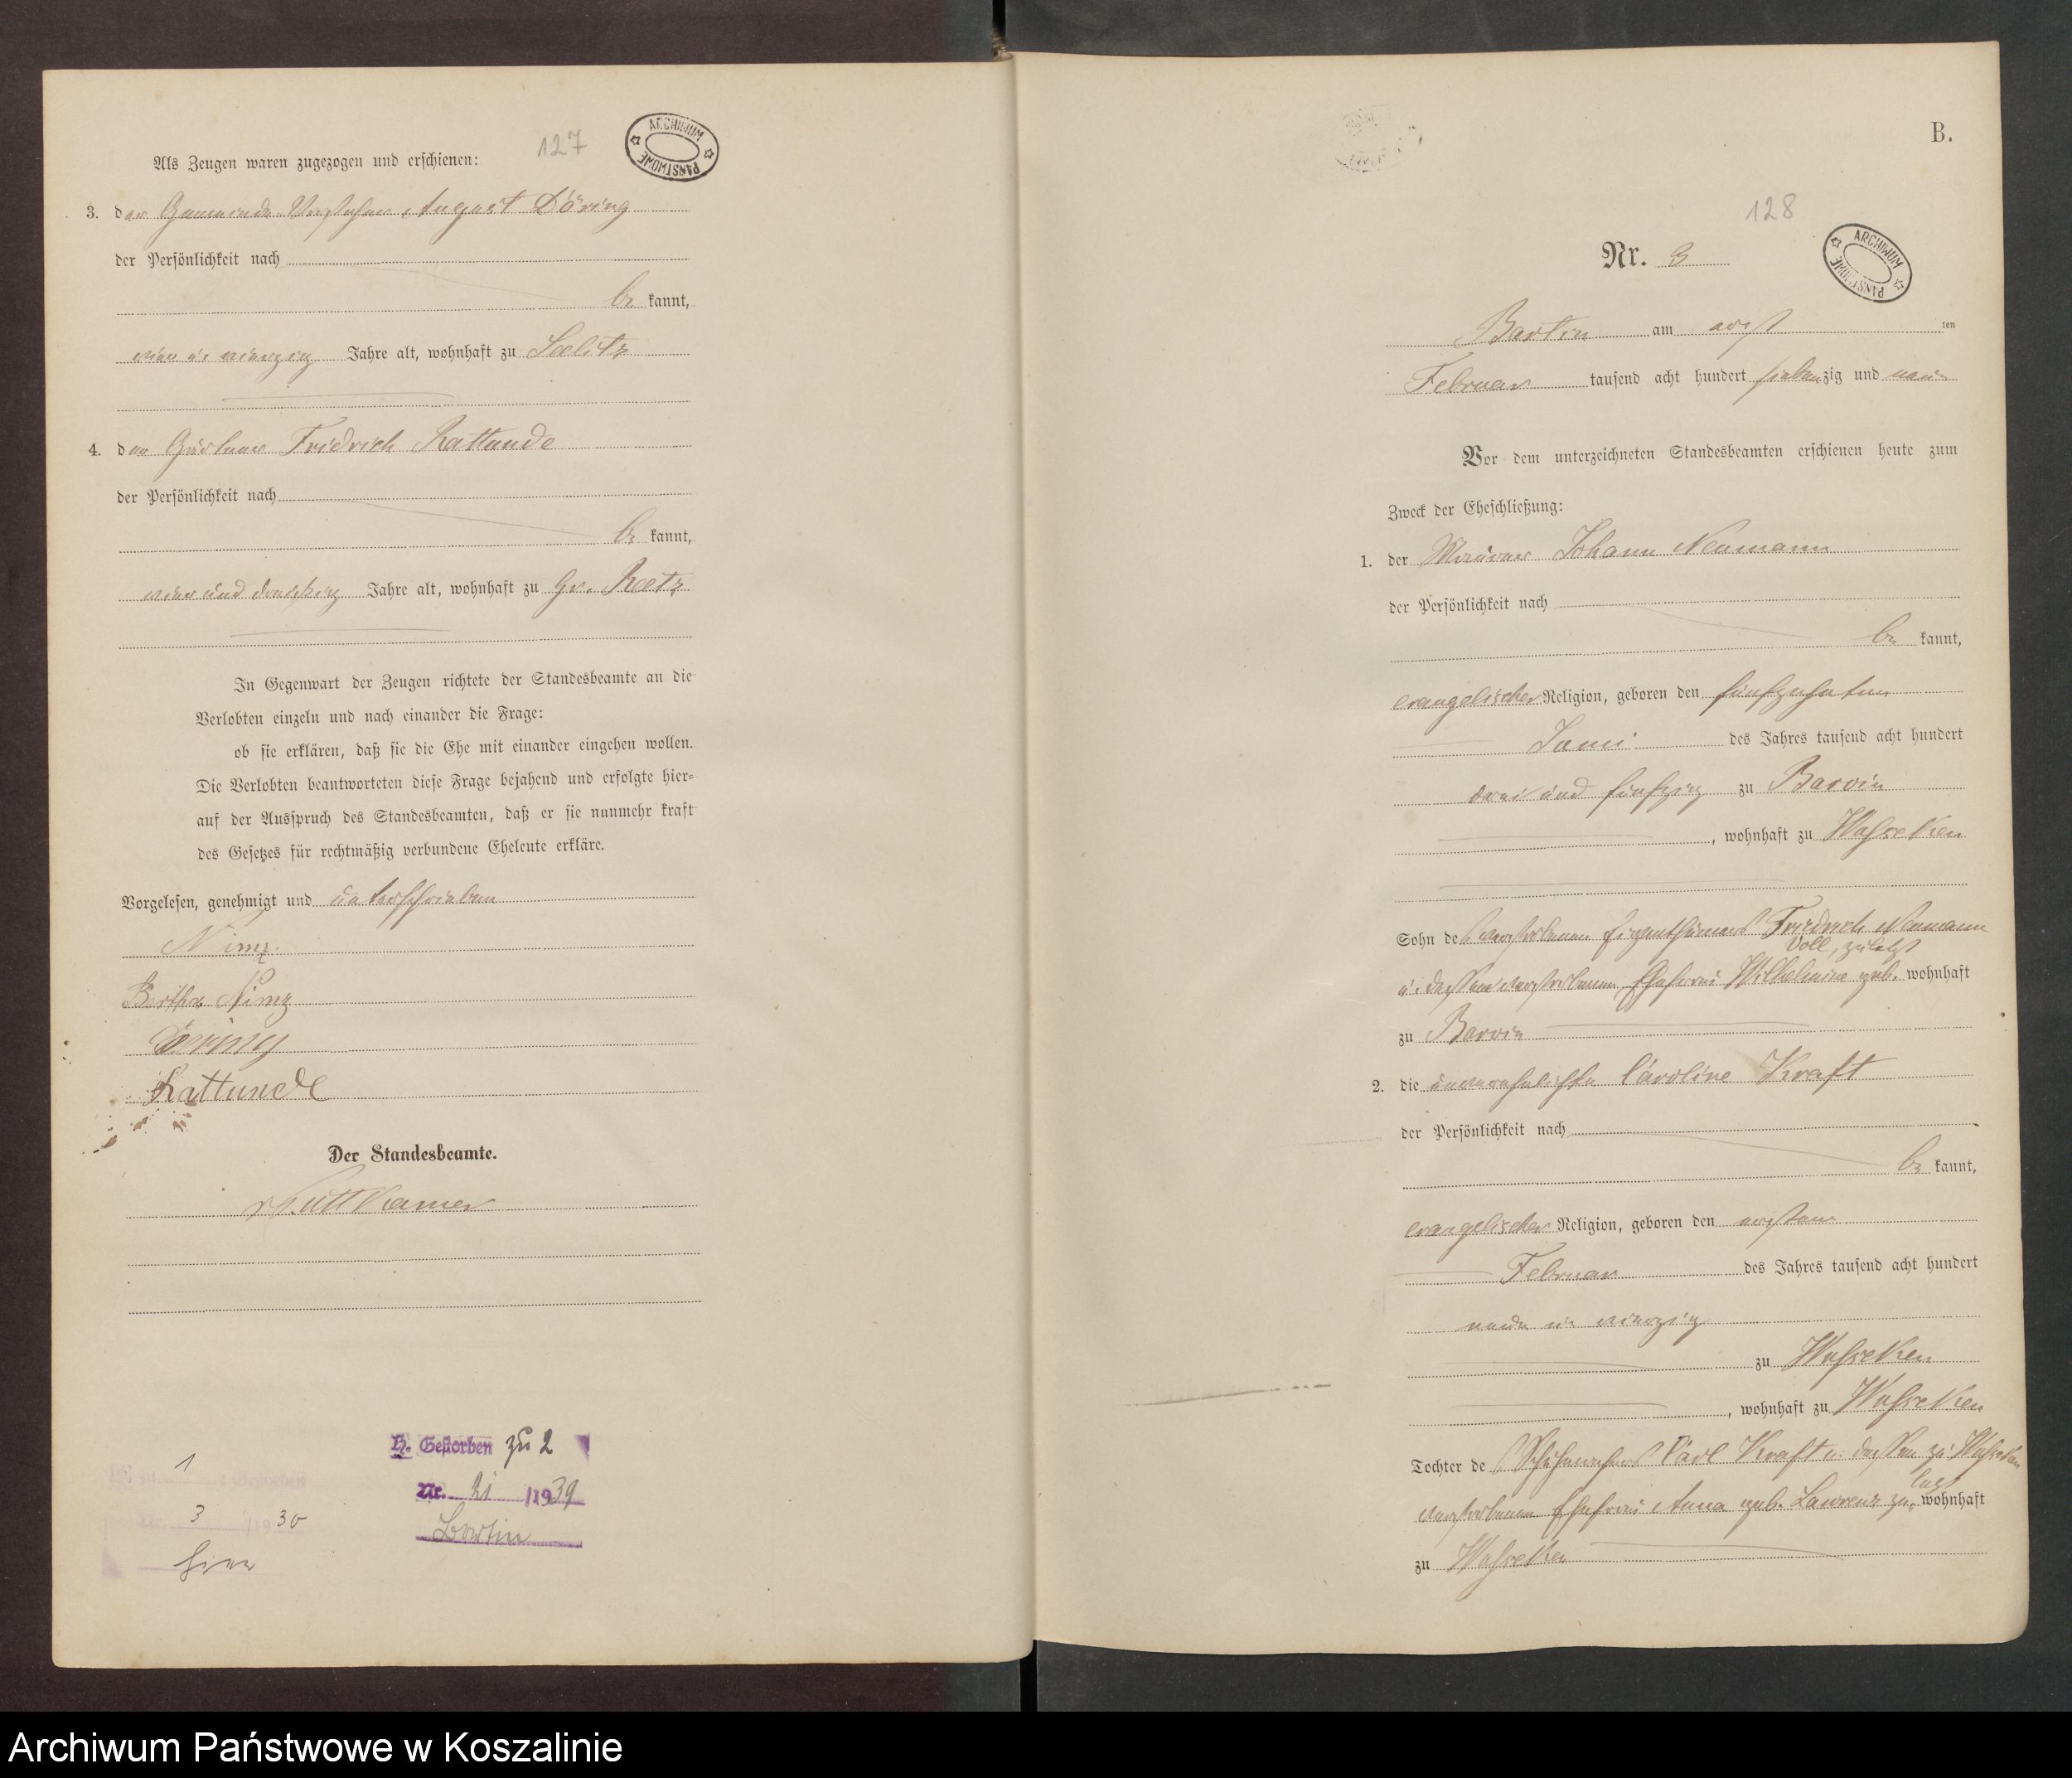 127
ARCHIWUM PAŃSTWOWE
Als Zeugen waren zugezogen und erschienen:
3. der Gemeinde-Vorsteher August Döring
der Persönlichkeit nach
be kannt,
vier u. vierzig Jahre alt, wohnhaft zu Seelitz
4. der Gärtner Friedrich Rattunde
der Persönlichkeit nach
be kannt,
vier und dreißig Jahre alt, wohnhaft zu Gr. Reetz
In Gegenwart der Zeugen richtete der Standesbeamte an die
Verlobten einzeln und nach einander die Frage:
ob sie erklären, daß sie die Ehe mit einander eingehen wollen.
Die Verlobten beantworteten diese Frage bejahend und erfolgte hier-
auf der Ausspruch des Standesbeamten, daß er sie nunmehr kraft
des Gesetzes für rechtmäßig verbundene Eheleute erkläre.
Vorgelesen, genehmigt und unterschrieben
Nimz.
Bertha Nimz
Döring
Rattunde
Der Standesbeamte.
v Puttkamer
1 : Gestorben
3 /19 30
hier
H. Gestorben zu 2
Nr. 21 /1939
Bartin
B.
128
ARCHIWUM PAŃSTWOWE
Nr. 3
Bartin am erst ten
Februar tausend acht hundert siebenzig und neun
Vor dem unterzeichneten Standesbeamten erschienen heute zum
Zweck der Eheschließung:
1. der Maurer Johann Neumann
der Persönlichkeit nach
be kannt,
evangelischer Religion, geboren den fünfzehnten
Juni des Jahres tausend acht hundert
drei und fünfzig zu Barvin
, wohnhaft zu Wusseken
Sohn des verstorbenen Eigenthümers Friedrich Neumann
u. dessen verstorbenen Ehefrau Wilhelmine geb. Voll, zuletzt wohnhaft
zu Barvin
2. die unverehelichte Caroline Kraft
der Persönlichkeit nach
be kannt,
evangelischer Religion, geboren den ersten
Februar des Jahres tausend acht hundert
neun u. vierzig
zu Wusseken
, wohnhaft zu Wusseken
Tochter des Schuhmachers Carl Kraft u. dessen zu Wusseken
verstorbenen Ehefrau Anna geb. Lawrenz zuletzt wohnhaft
zu Wusseken
Archiwum Państwowe w Koszalinie